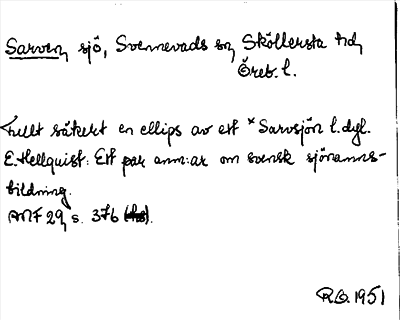 Sarven, sjö, Svennevads sn, Sköllersta hd,
Öreb. l.
helt säkert en ellips av ett *Sarvsjön l. dyl.
E. Hellquist: Ett par anm:ar om svensk sjönamns-
bildning.
ANF 29, s. 376.
R.G. 1951